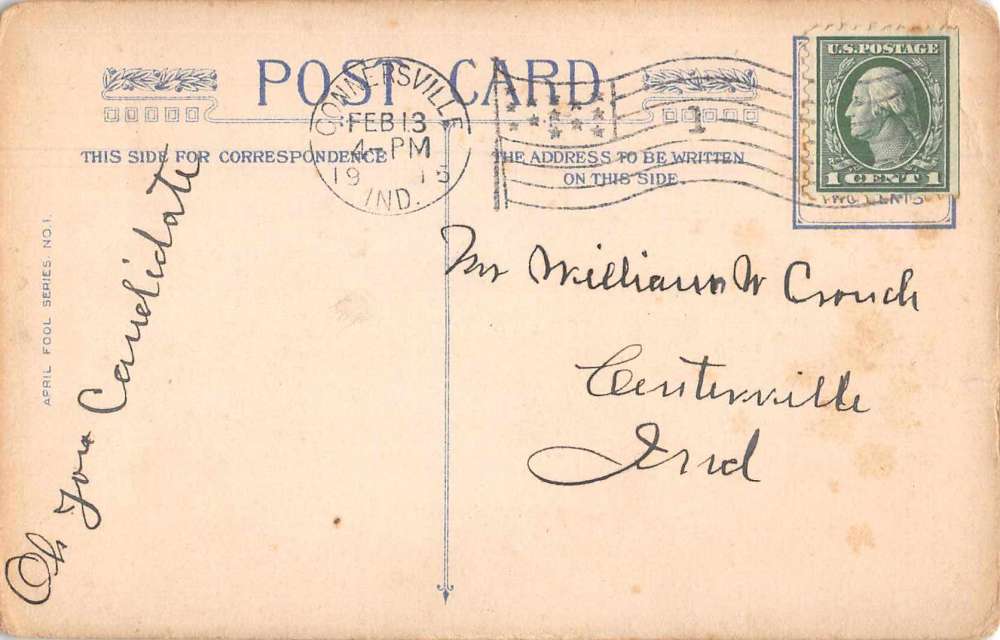 POST CARD
CONNERSVILLE
FEB 13
4-PM
1915
IND.
1
U.S. POSTAGE
1 CENT 1
TWO CENTS
THIS SIDE FOR CORRESPONDENCE
THE ADDRESS TO BE WRITTEN
ON THIS SIDE.
APRIL FOOL SERIES. NO. 1.
Oh You Candidate
Mr William W Crouch
Centerville
Ind